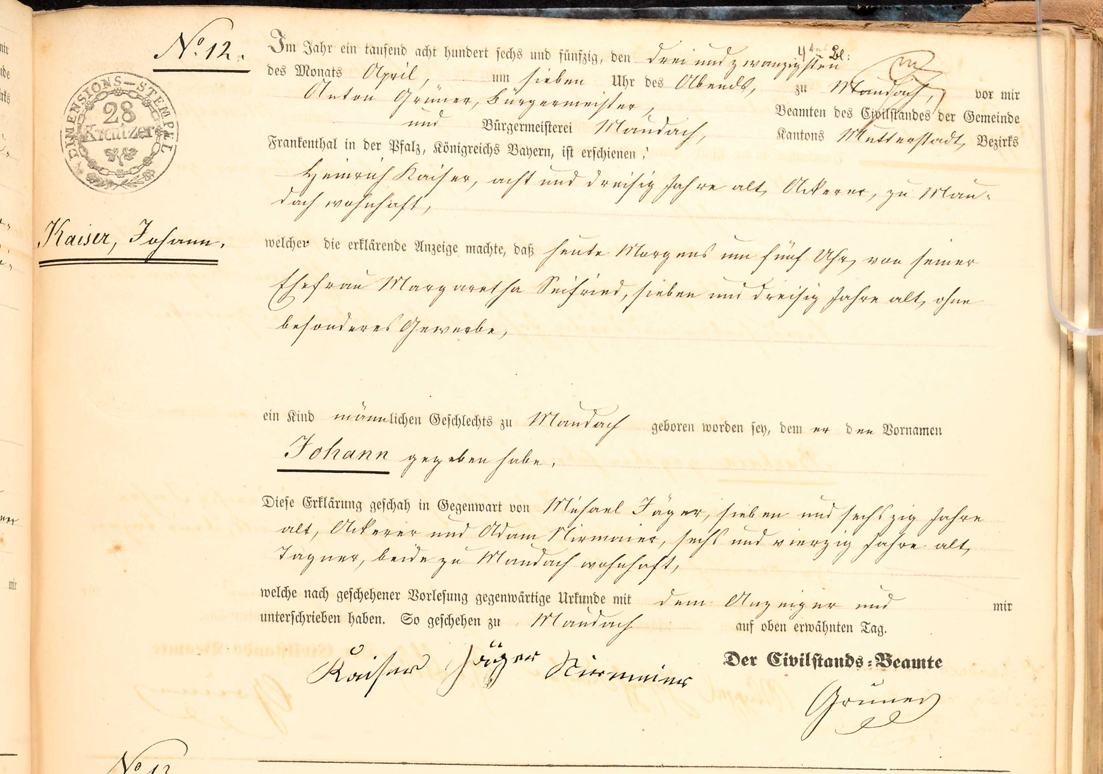 No. 12.
4tes Bl:
Im Jahr ein tausend acht hundert sechs und fünfzig, den drei und zwanzigsten
des Monats April, um sieben Uhr des Abends, zu Maudach, vor mir
Anton Grüner, Bürgermeister, Beamten des Civilstandes der Gemeinde
und Bürgermeisterei Maudach, Kantons Mutterstadt, Bezirks
Frankenthal in der Pfalz, Königreichs Bayern, ist erschienen:
DIMENSIONS-STEMPEL
28
Kreutzer
Heinrich Kaiser, acht und dreisig Jahre alt, Ackerer, zu Mau-
dach wohnhaft,
Kaiser, Johann.
welcher die erklärende Anzeige machte, daß heute Morgens um fünf Uhr, von seiner
Ehefrau Margaretha Seifried, sieben und dreisig Jahre alt, ohne
besonderes Gewerbe,
ein Kind männlichen Geschlechts zu Maudach geboren worden sey, dem er den Vornamen
Johann gegeben habe.
Diese Erklärung geschah in Gegenwart von Michael Jäger, sieben und sechszig Jahre
alt, Ackerer und Adam Nirmaier, sechs und vierzig Jahre alt,
Tagner, beide zu Maudach wohnhaft,
welche nach geschehener Vorlesung gegenwärtige Urkunde mit dem Anzeiger und mir
unterschrieben haben. So geschehen zu Maudach auf oben erwähnten Tag.
Der Civilstands-Beamte
Kaiser Jäger Nirmaier
Grüner
No. 13